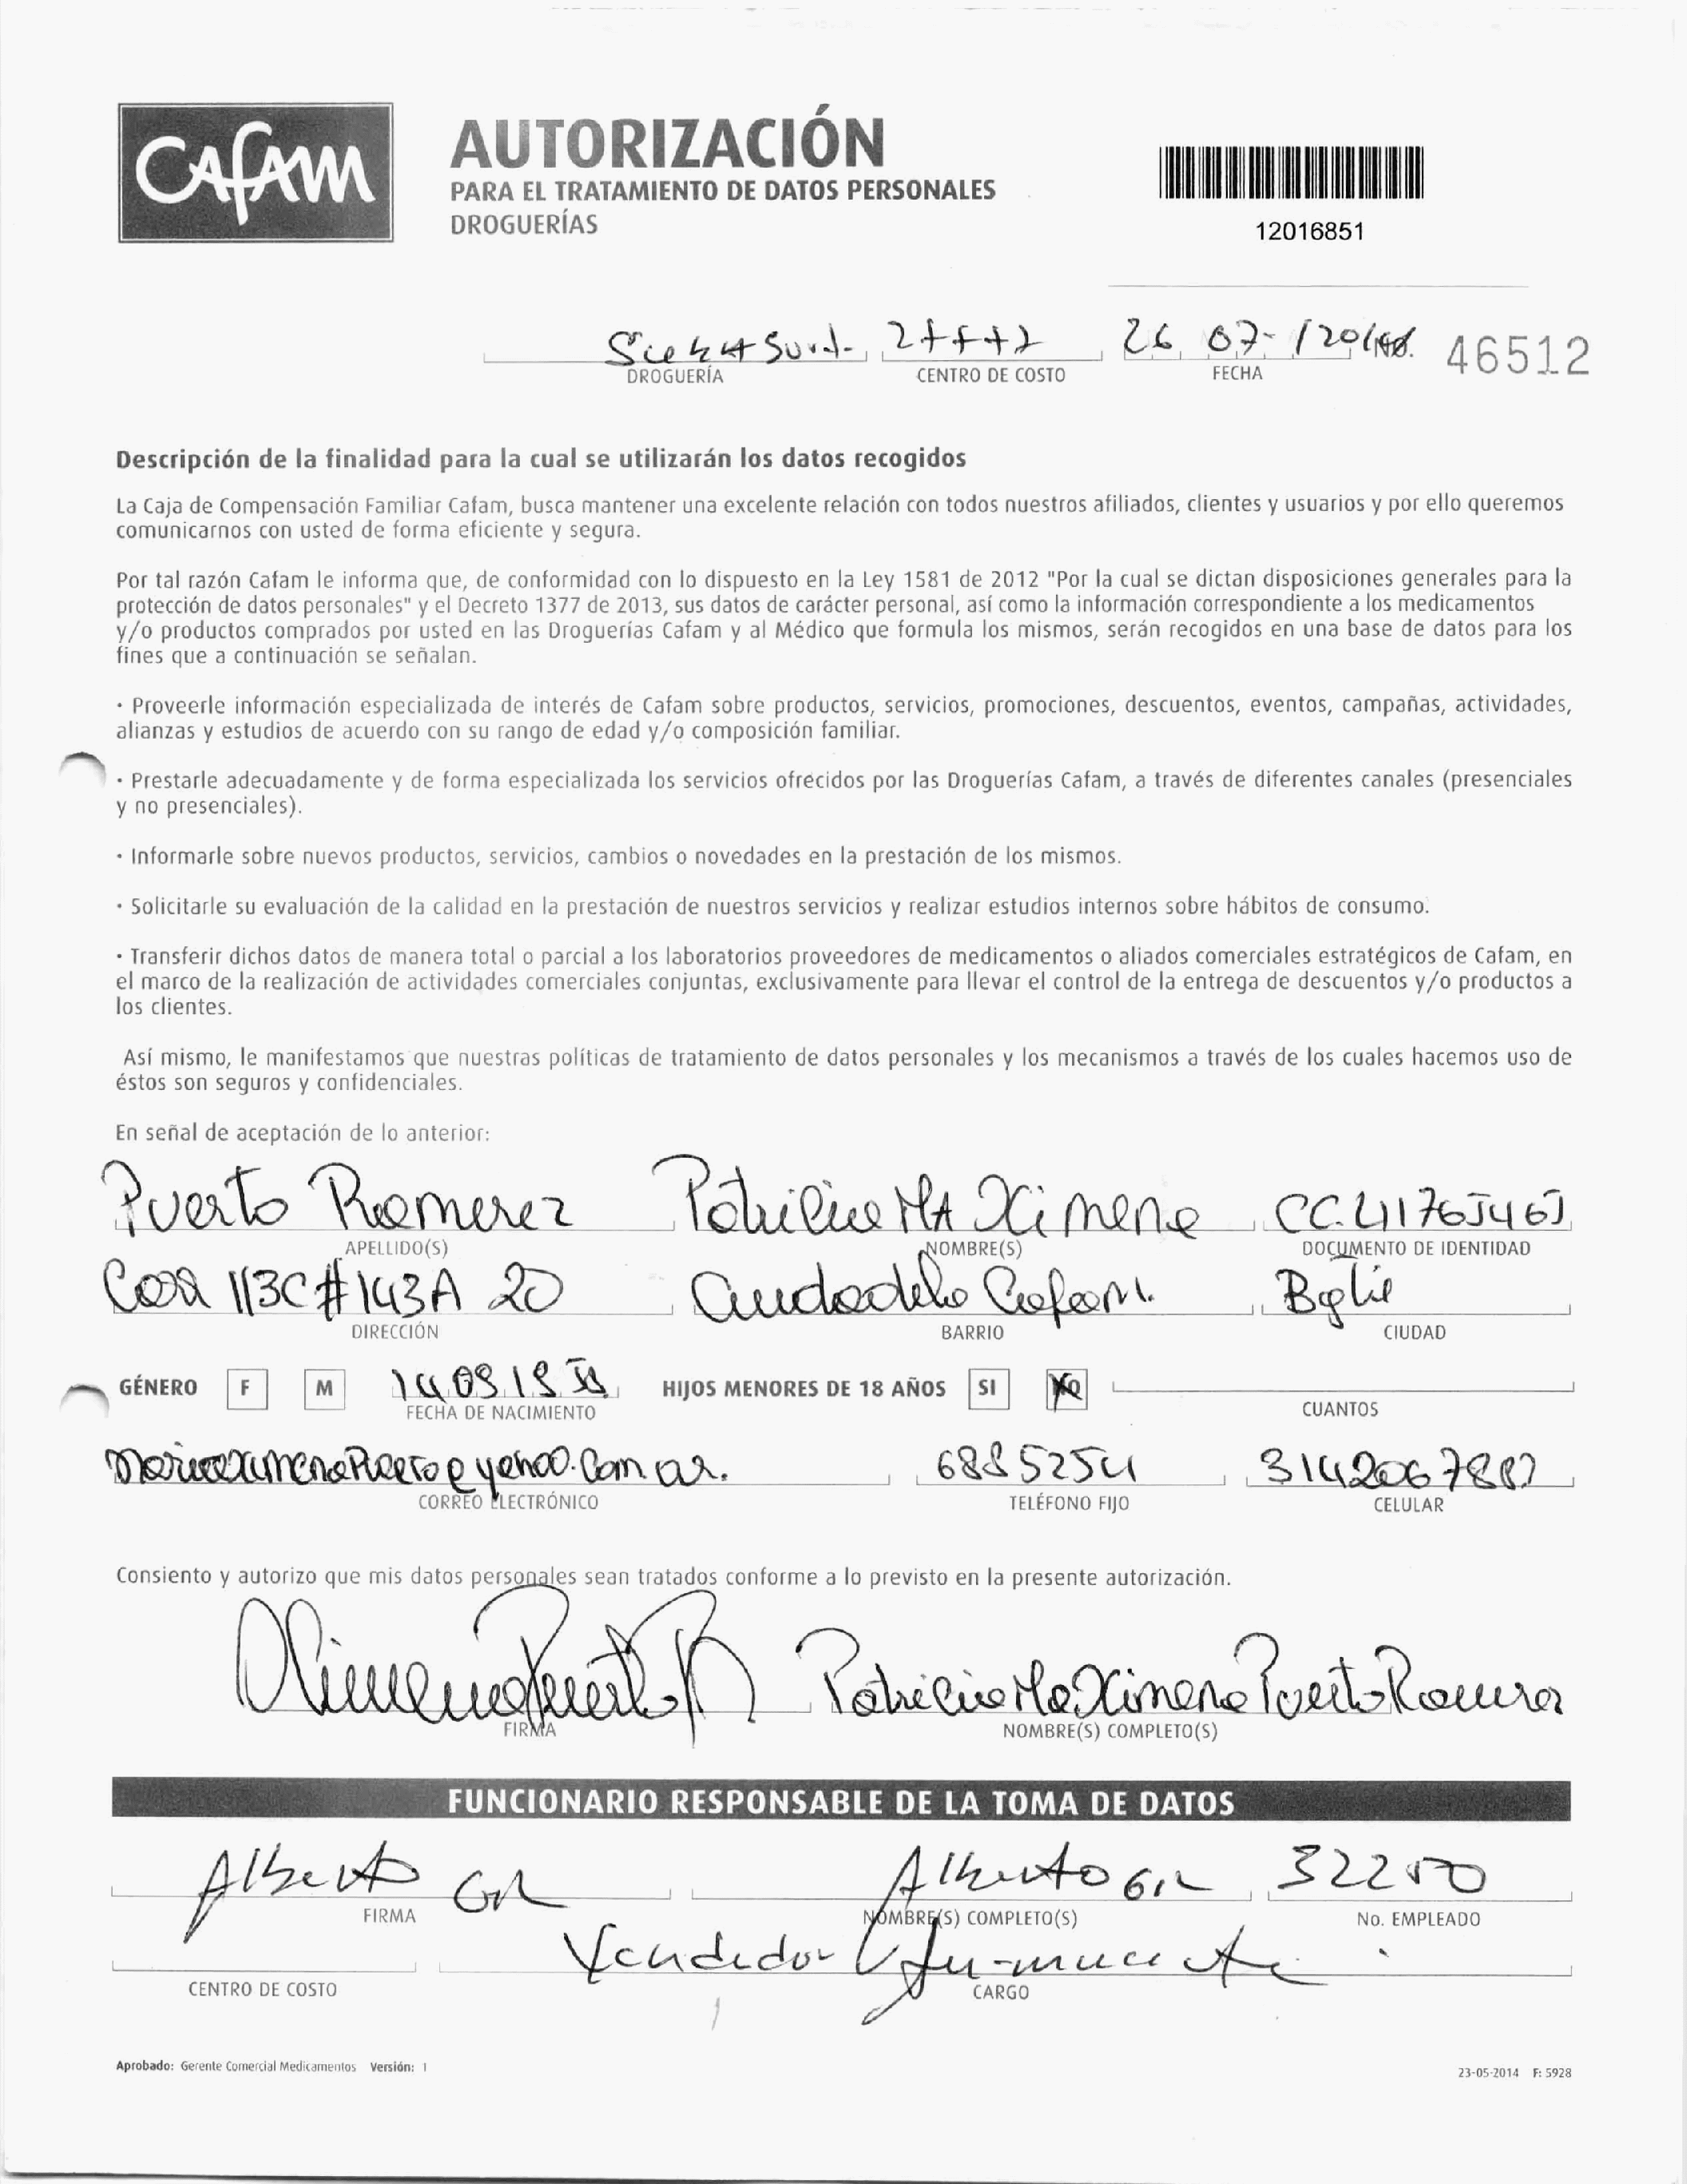 CAFAM
AUTORIZACIÓN
PARA EL TRATAMIENTO DE DATOS PERSONALES
DROGUERÍAS
12016851
26 07- No. 46512
DROGUERÍA CENTRO DE COSTO FECHA
Descripción de la finalidad para la cual se utilizarán los datos recogidos
La Caja de Compensación Familiar Cafam, busca mantener una excelente relación con todos nuestros afiliados, clientes y usuarios y por ello queremos
comunicarnos con usted de forma eficiente y segura.
Por tal razón Cafam le informa que, de conformidad con lo dispuesto en la Ley 1581 de 2012 "Por la cual se dictan disposiciones generales para la
protección de datos personales" y el Decreto 1377 de 2013, sus datos de carácter personal, así como la información correspondiente a los medicamentos
y/o productos comprados por usted en las Droguerías Cafam y al Médico que formula los mismos, serán recogidos en una base de datos para los
fines que a continuación se señalan.
· Proveerle información especializada de interés de Cafam sobre productos, servicios, promociones, descuentos, eventos, campañas, actividades,
alianzas y estudios de acuerdo con su rango de edad y/o composición familiar.
· Prestarle adecuadamente y de forma especializada los servicios ofrecidos por las Droguerías Cafam, a través de diferentes canales (presenciales
y no presenciales).
· Informarle sobre nuevos productos, servicios, cambios o novedades en la prestación de los mismos.
· Solicitarle su evaluación de la calidad en la prestación de nuestros servicios y realizar estudios internos sobre hábitos de consumo.
· Transferir dichos datos de manera total o parcial a los laboratorios proveedores de medicamentos o aliados comerciales estratégicos de Cafam, en
el marco de la realización de actividades comerciales conjuntas, exclusivamente para llevar el control de la entrega de descuentos y/o productos a
los clientes.
Así mismo, le manifestamos que nuestras políticas de tratamiento de datos personales y los mecanismos a través de los cuales hacemos uso de
éstos son seguros y confidenciales.
En señal de aceptación de lo anterior:
Puerto Ramirez Patricia Ma Ximena CC. 41765465
APELLIDO(S) NOMBRE(S) DOCUMENTO DE IDENTIDAD
113C # 143A 20 Cafam.
DIRECCIÓN BARRIO CIUDAD
GÉNERO F M HIJOS MENORES DE 18 AÑOS SI NO
FECHA DE NACIMIENTO CUANTOS
6885254
CORREO ELECTRÓNICO TELÉFONO FIJO CELULAR
Consiento y autorizo que mis datos personales sean tratados conforme a lo previsto en la presente autorización.
Ximena Puerto R Patricia Ma Ximena Puerto Ramirez
FIRMA NOMBRE(S) COMPLETO(S)
FUNCIONARIO RESPONSABLE DE LA TOMA DE DATOS
Alberto Gil Alberto Gil 32250
FIRMA NOMBRE(S) COMPLETO(S) No. EMPLEADO
Vendedor
CENTRO DE COSTO CARGO
Aprobado: Gerente Comercial Medicamentos Versión: 1
23-05-2014 F: 5928